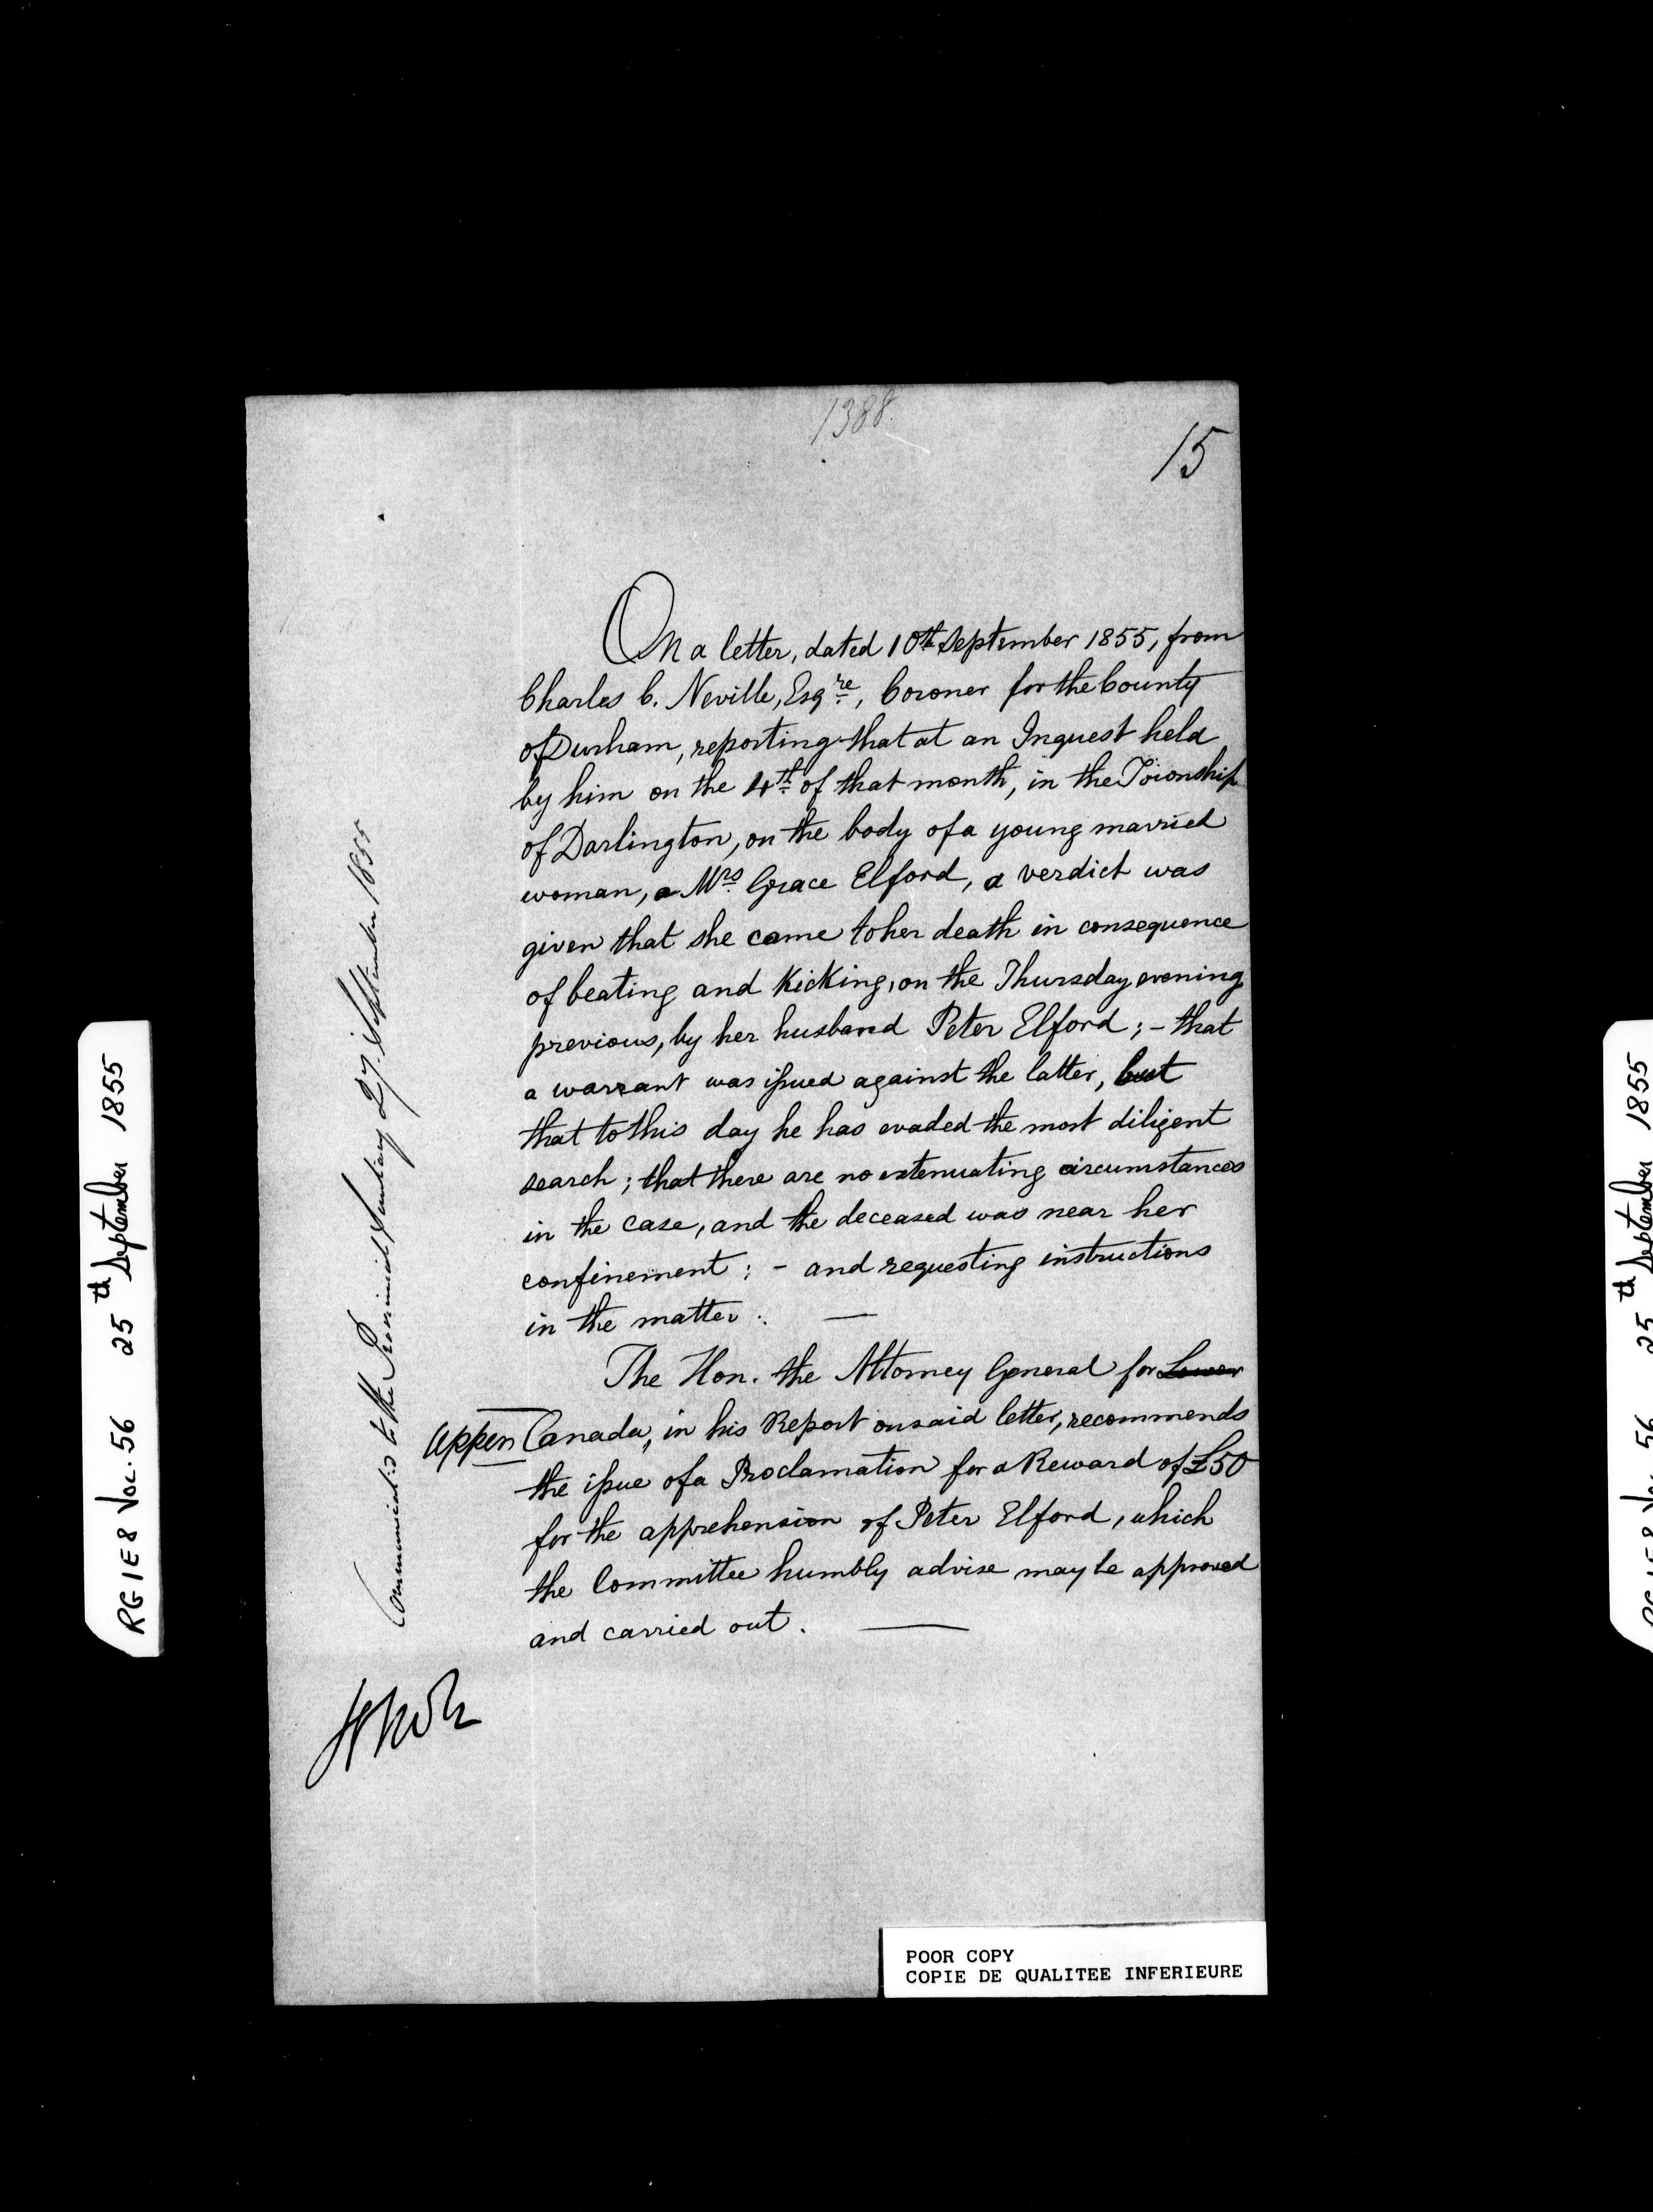 1388.
15
On a letter, dated 10th September 1855, from
Charles C. Neville, Esqre, Coroner for the County
of Durham, reporting that at an Inquest held
by him on the 4th of that month, in the Township
of Darlington, on the body of a young married
woman, a Mrs Grace Elford, a verdict was
given that she came to her death in consequence
of beating and kicking, on the Thursday evening
previous, by her husband Peter Elford; - that
a warrant was issued against the latter, but
that to this day he has evaded the most diligent
search; that there are no extenuating circumstances
in the case, and the deceased was near her
confinement; - and requesting instructions
in the matter. —
The Hon. the Attorney General for Lower
Upper Canada, in his Report on said letter, recommends
the issue of a Proclamation for a Reward of £50
for the apprehension of Peter Elford, which
the Committee humbly advise may be approved
and carried out. —
Communicat:d to the Provincial Secretary 27 September 1855
POOR COPY
COPIE DE QUALITEE INFERIEURE
RG 1 E 8 Vol. 56 25th September 1855
25th September 1855